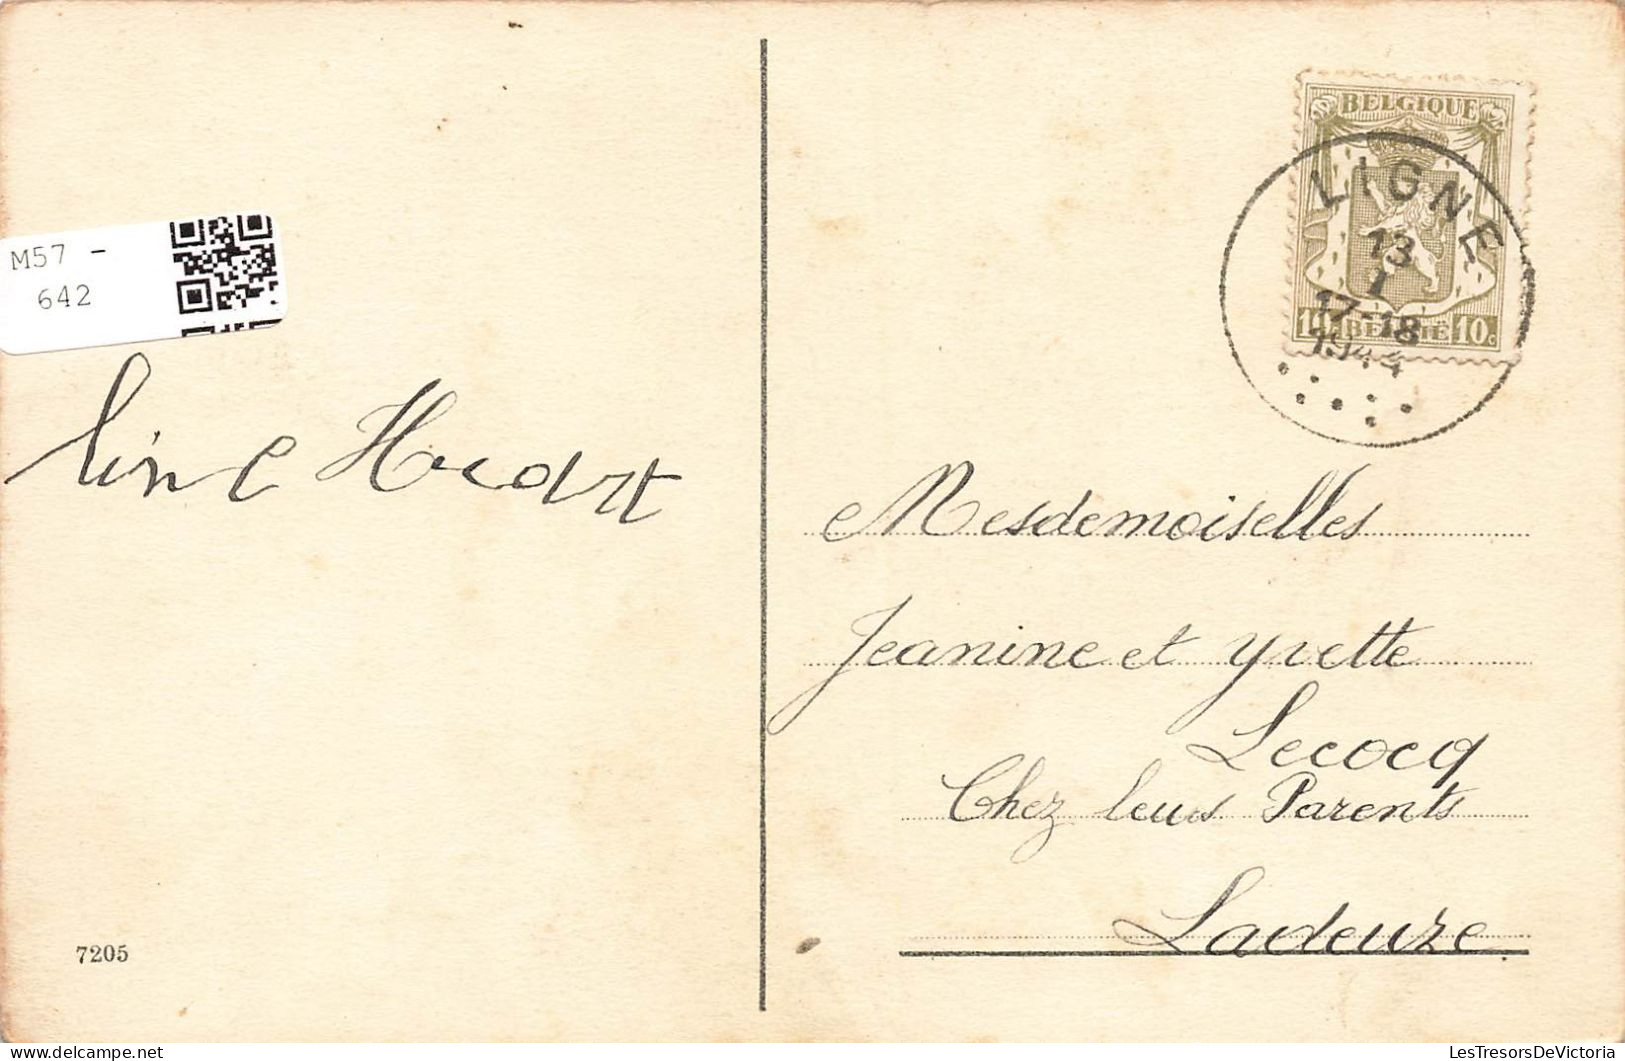 BELGIQUE
LIGNE
13
1
17-18
1944
BELGIË 10c
M57 -
642
line
Mesdemoiselles
Jeanine et Yvette
Lecocq
Chez leurs Parents
Ladeuze
7205
LesTresorsDeVictoria